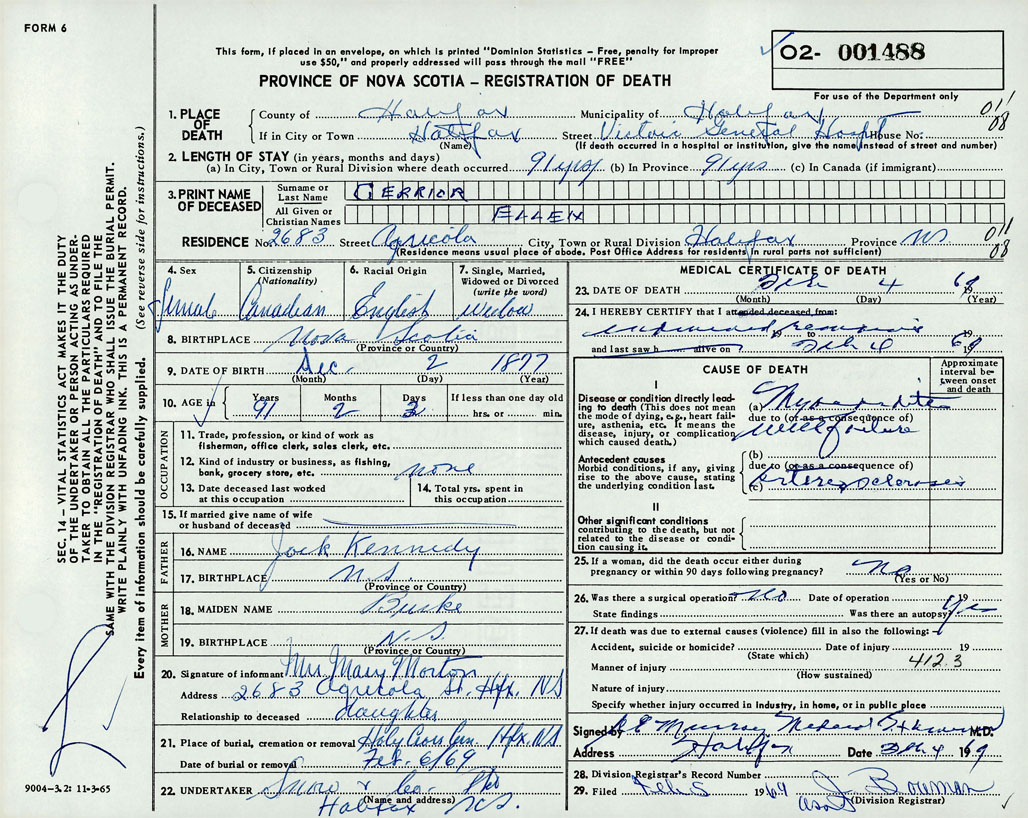 FORM 6
This form, if placed in an envelope, on which is printed "Dominion Statistics - Free, penalty for improper
use $50," and properly addressed will pass through the mail "FREE"
O2- 001488
PROVINCE OF NOVA SCOTIA – REGISTRATION OF DEATH
For use of the Department only
1. PLACE OF DEATH
County of Halifax Municipality of Halifax 011
If in City or Town Halifax Street Victoria General Hospt House No. 08
(Name) (If death occurred in a hospital or institution, give the name instead of street and number)
2. LENGTH OF STAY (in years, months and days)
(a) In City, Town or Rural Division where death occurred 91 yrs (b) In Province 91 yrs (c) In Canada (if immigrant)
3. PRINT NAME OF DECEASED
Surname or Last Name GERRIOR
All Given or Christian Names ELLEN
RESIDENCE No. 2683 Street Agricola City, Town or Rural Division Halifax Province NS 011
(Residence means usual place of abode. Post Office Address for residents in rural parts not sufficient) 08
4. Sex 5. Citizenship (Nationality) 6. Racial Origin 7. Single, Married, Widowed or Divorced (write the word)
Female Canadian English Widow
8. BIRTHPLACE Nova Scotia
(Province or Country)
9. DATE OF BIRTH Dec. 2 1877
(Month) (Day) (Year)
10. AGE in Years Months Days If less than one day old
91 2 3 hrs. or min.
OCCUPATION
11. Trade, profession, or kind of work as
fisherman, office clerk, sales clerk, etc.
12. Kind of industry or business, as fishing,
bank, grocery store, etc. none
13. Date deceased last worked
at this occupation
14. Total yrs. spent in
this occupation
15. If married give name of wife
or husband of deceased
FATHER
16. NAME Jack Kennedy
17. BIRTHPLACE N.S.
(Province or Country)
MOTHER
18. MAIDEN NAME Burke
19. BIRTHPLACE N.S.
(Province or Country)
20. Signature of informant Mrs. Mary Morton
Address 2683 Agricola St. Hfx. NS
Relationship to deceased daughter
21. Place of burial, cremation or removal Holy Cross Cem Hfx. NS
Date of burial or removal Feb. 6/69
22. UNDERTAKER Snow & Co. Ltd
(Name and address)
Halifax N.S.
MEDICAL CERTIFICATE OF DEATH
23. DATE OF DEATH Feb 4 1969
(Month) (Day) (Year)
24. I HEREBY CERTIFY that I attended deceased from:
19 to 19
and last saw h alive on Feb 4 1969
CAUSE OF DEATH
Approximate interval between onset and death
I
Disease or condition directly leading
to death (This does not mean
the mode of dying, e.g., heart failure,
asthenia, etc. It means the
disease, injury, or complication
which caused death.)
(a) Myocarditis
due to (or as a consequence of)
with failure
Antecedent causes
Morbid conditions, if any, giving
rise to the above cause, stating
the underlying condition last.
(b)
due to (or as a consequence of)
(c) Arteriosclerosis
II
Other significant conditions
contributing to the death, but not
related to the disease or condition
causing it.
25. If a woman, did the death occur either during
pregnancy or within 90 days following pregnancy? No
(Yes or No)
26. Was there a surgical operation? No Date of operation 19
State findings Was there an autopsy? Yes
27. If death was due to external causes (violence) fill in also the following:
Accident, suicide or homicide? Date of injury 19
(State which) 412.3
Manner of injury
(How sustained)
Nature of injury
Specify whether injury occurred in industry, in home, or in public place
Signed by R E Murray Medical M.D.
Address Halifax Date Feb 4 1969
28. Division Registrar's Record Number
29. Filed Feb 5 1969 J. Bowman
Asst (Division Registrar)
SEC. 14 – VITAL STATISTICS ACT MAKES IT THE DUTY
OF THE UNDERTAKER OR PERSON ACTING AS UNDER-
TAKER TO OBTAIN ALL THE PARTICULARS REQUIRED
IN THE "REGISTRATION OF DEATH" AND TO FILE THE
SAME WITH THE DIVISION REGISTRAR WHO SHALL ISSUE THE BURIAL PERMIT.
WRITE PLAINLY WITH UNFADING INK. THIS IS A PERMANENT RECORD.
Every item of information should be carefully supplied. (See reverse side for instructions.)
9004-3.2: 11-3-65